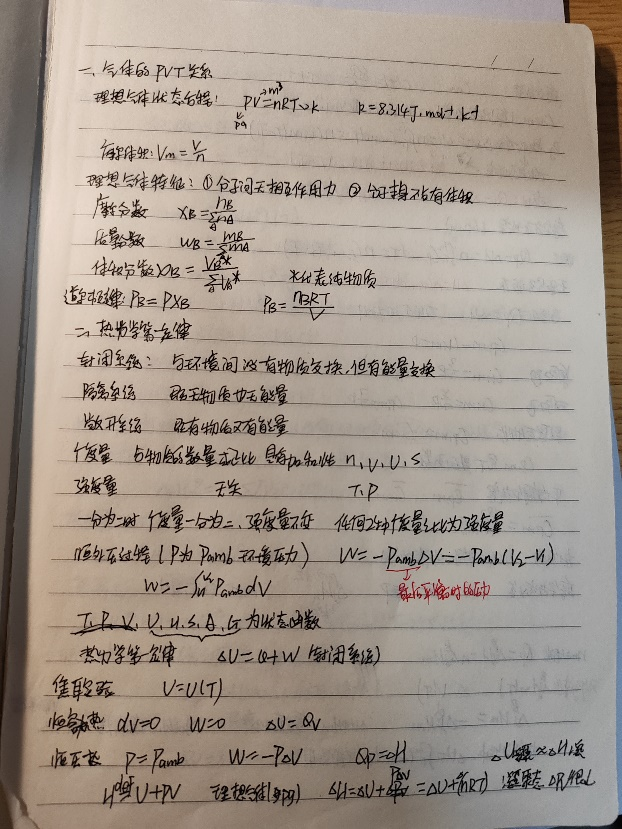 一、气体的PVT关系
理想气体状态方程: PV=nRT→k R=8.314J·mol⁻¹·k⁻¹
m³
Pa
摩尔体积: Vm=V/n
理想气体特征: ①分子间无相互作用力 ②分子本身不占有体积
摩尔分数 XB=nB/∑nA
质量分数 WB=mB/∑mA
体积分数 φB=VB*/∑VA* *代表纯物质
道尔顿定律: PB=PXB PB=nBRT/V
二、热力学第一定律
封闭系统: 与环境间没有物质交换,但有能量交换
隔离系统 既无物质也无能量
敞开系统 既有物质又有能量
广度量 与物质的数量成正比 具有加和性 n,V,U,S
强度量 无关 T,P
一分为二时 广度量一分为二、强度量不变 任何2种广度量之比为强度量
恒外压过程(P为Pamb环境压力) W=-PambΔV=-Pamb(V2-V1)
W=-∫PambdV 最后平衡时的压力
T、P、V、U、H、S、A、G为状态函数
热力学第一定律 ΔU=Q+W (封闭系统)
焦耳实验 U=U(T)
恒容热 dV=0 W=0 ΔU=QV
恒压热 P=Pamb W=-PΔV Qp=ΔH
H def U+PV 理想气体 ΔH=ΔU+ΔPV=ΔU+Δ(nRT)